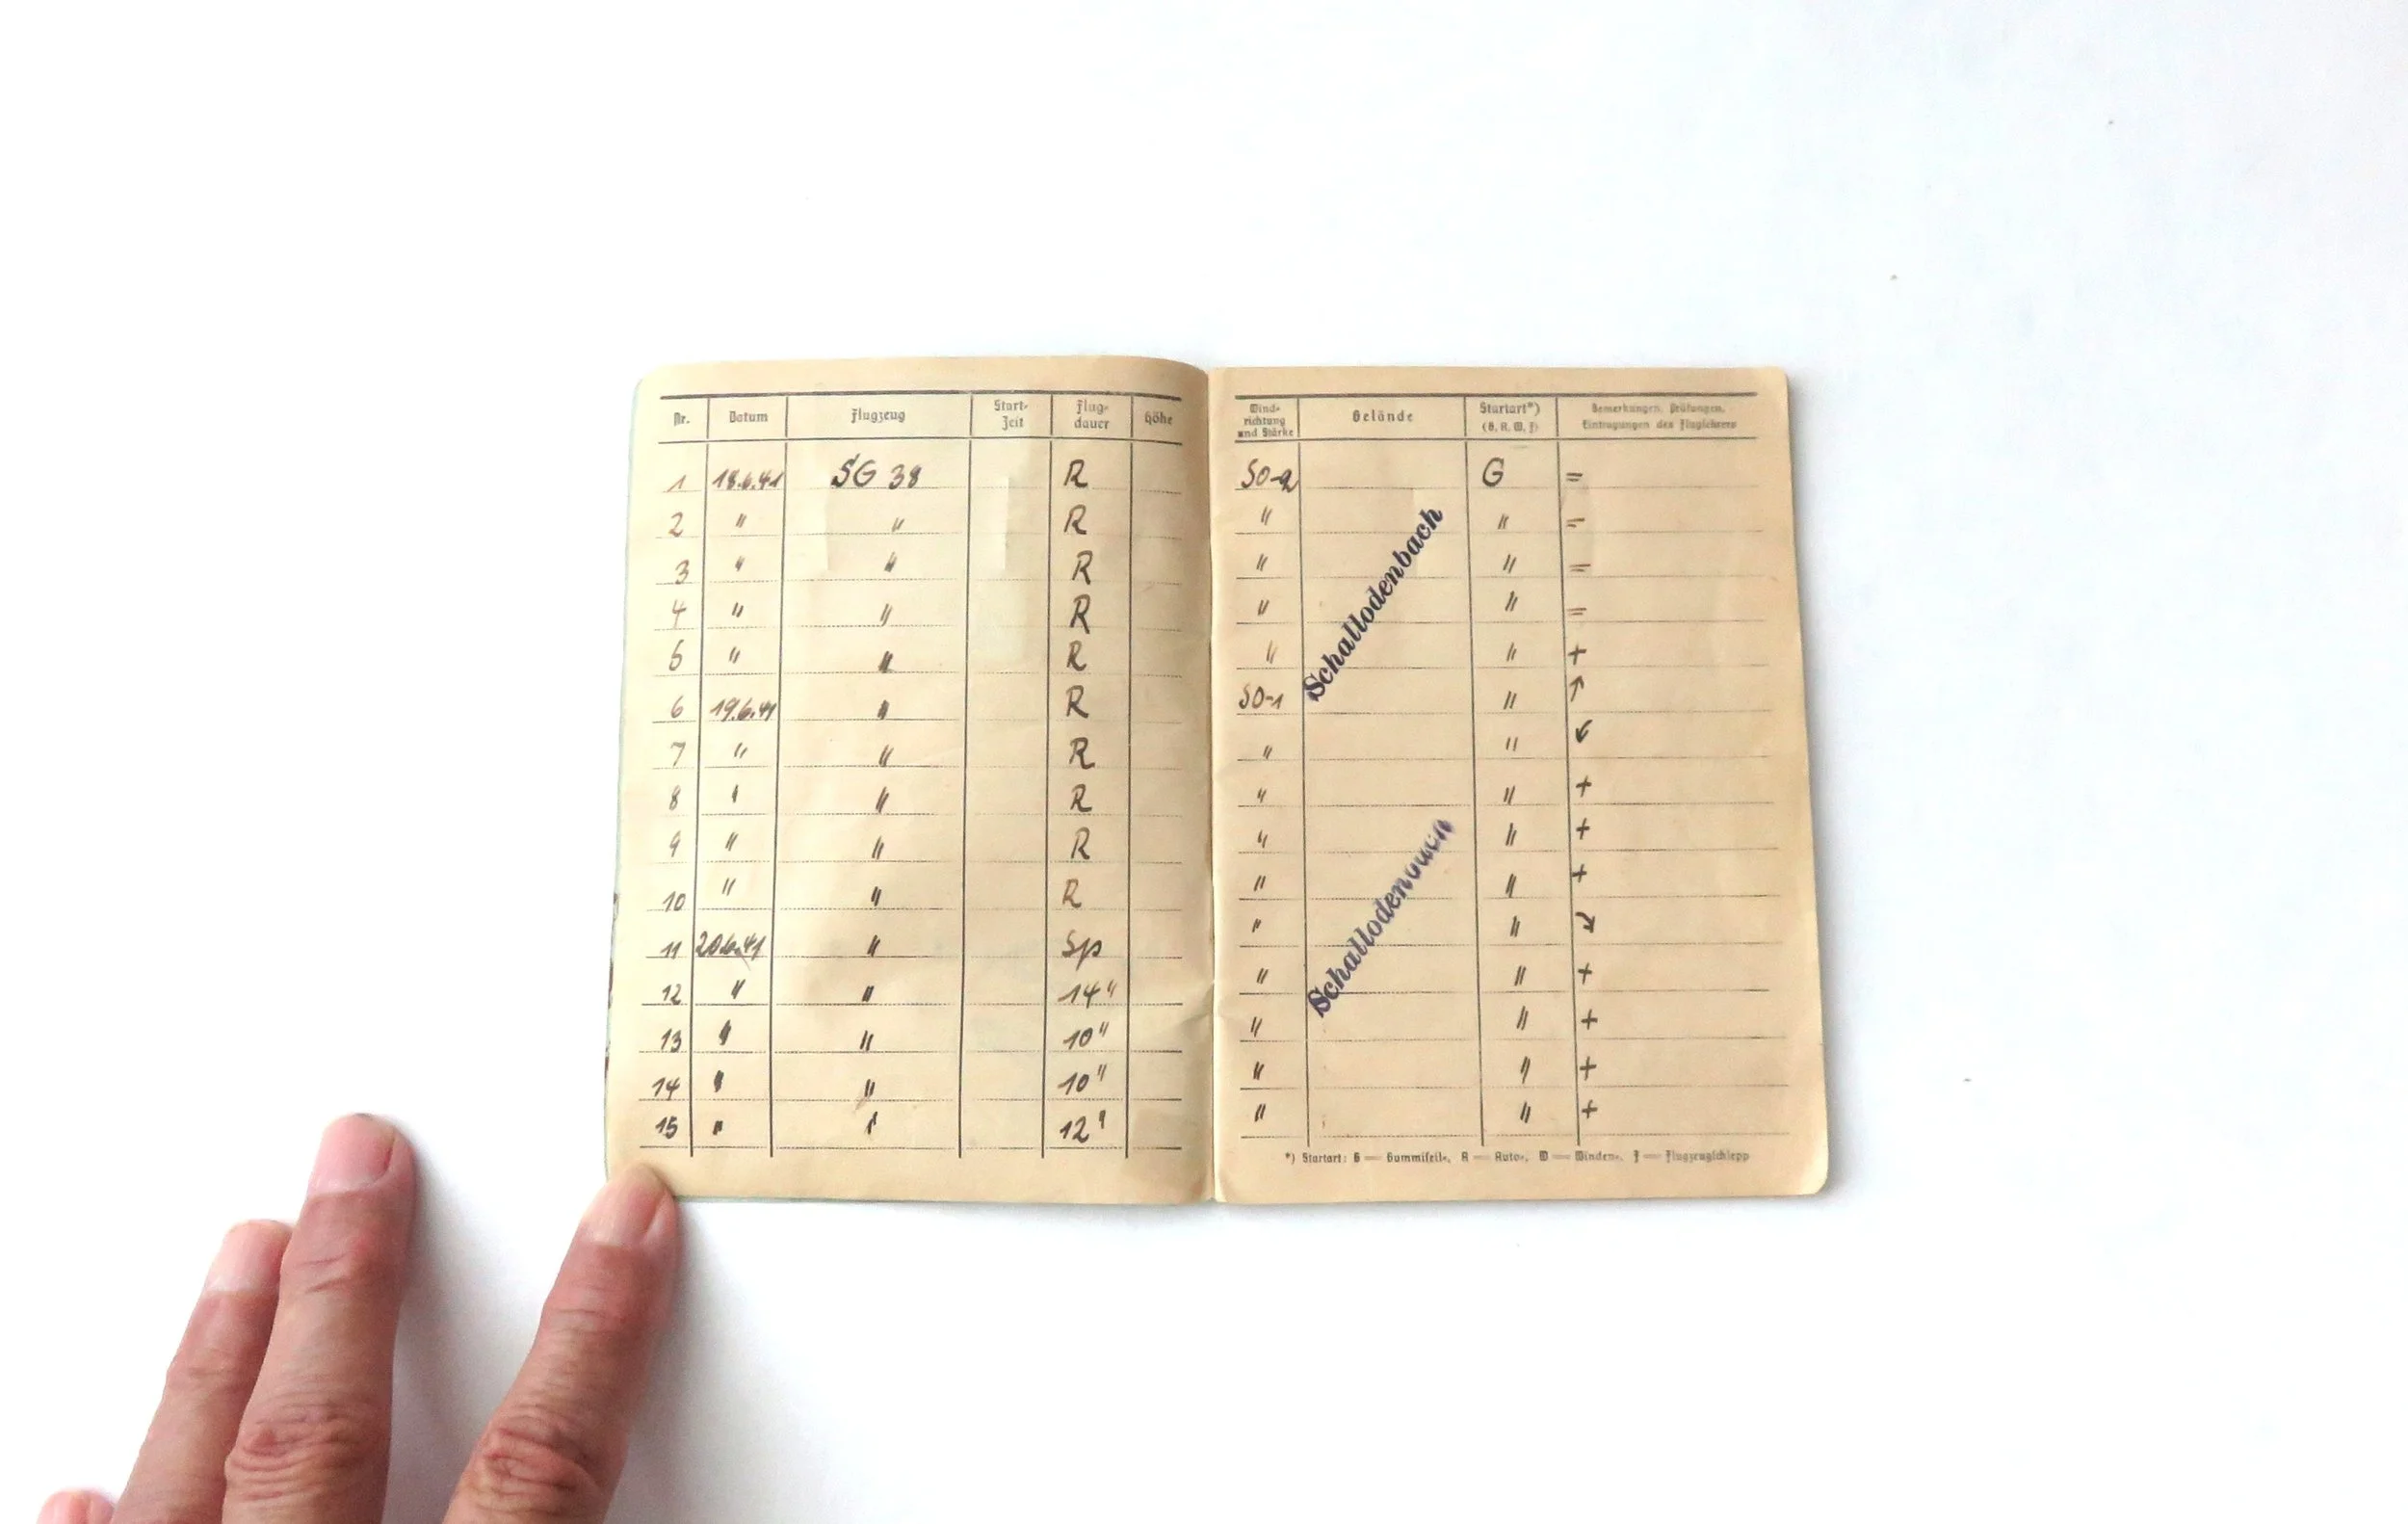 Nr. Datum Flugzeug Start-Zeit Flug-dauer Höhe
1 18.6.41 SG 38 R
2 " " R
3 " " R
4 " " R
5 " " R
6 19.6.41 " R
7 " " R
8 " " R
9 " " R
10 " " R
11 20.6.41 " Sp
12 " " 14"
13 " " 10"
14 " " 10"
15 " " 12"
Wind-richtung und Stärke Gelände Startart*) (G, A, W, F) Bemerkungen, Prüfungen, Eintragungen des Fluglehrers
SO-2 G =
" " =
" " =
" " =
" " +
SO-1 " ↑
" " ↙
" " +
" " +
" " +
" " ↘
" " +
" " +
" " +
" " +
Schallodenbach
Schallodenbach
*) Startart: G = Gummiseil-, A = Auto-, W = Winden-, F = Flugzeugschlepp